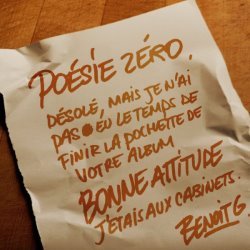 POÉSIE ZÉRO
DÉSOLÉ, MAIS JE N'AI
PAS EU LE TEMPS DE
FINIR LA POCHETTE DE
VOTRE ALBUM.
BONNE ATTITUDE
J'ÉTAIS AUX CABINETS.
BENOIT G